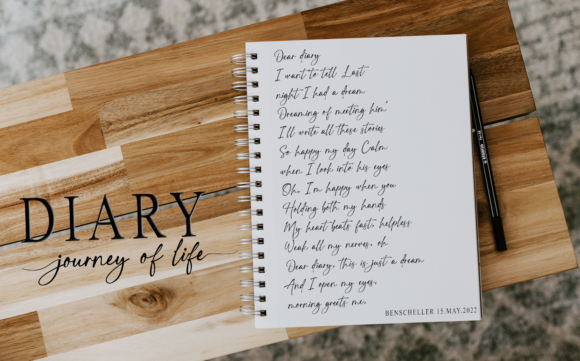 Dear diary
I want to tell Last
night I had a dream
Dreaming of meeting him"
I'll write all these stories
So happy my day Calm
when I look into his eyes
Oh, I'm happy when you
Holding both my hands
My heart beats fast, helpless
Weak all my nerves, oh
Dear diary, this is just a dream
And I open my eyes,
morning greets me.
BENSCHULLER 15.MAY.2022
DIARY
journey of life